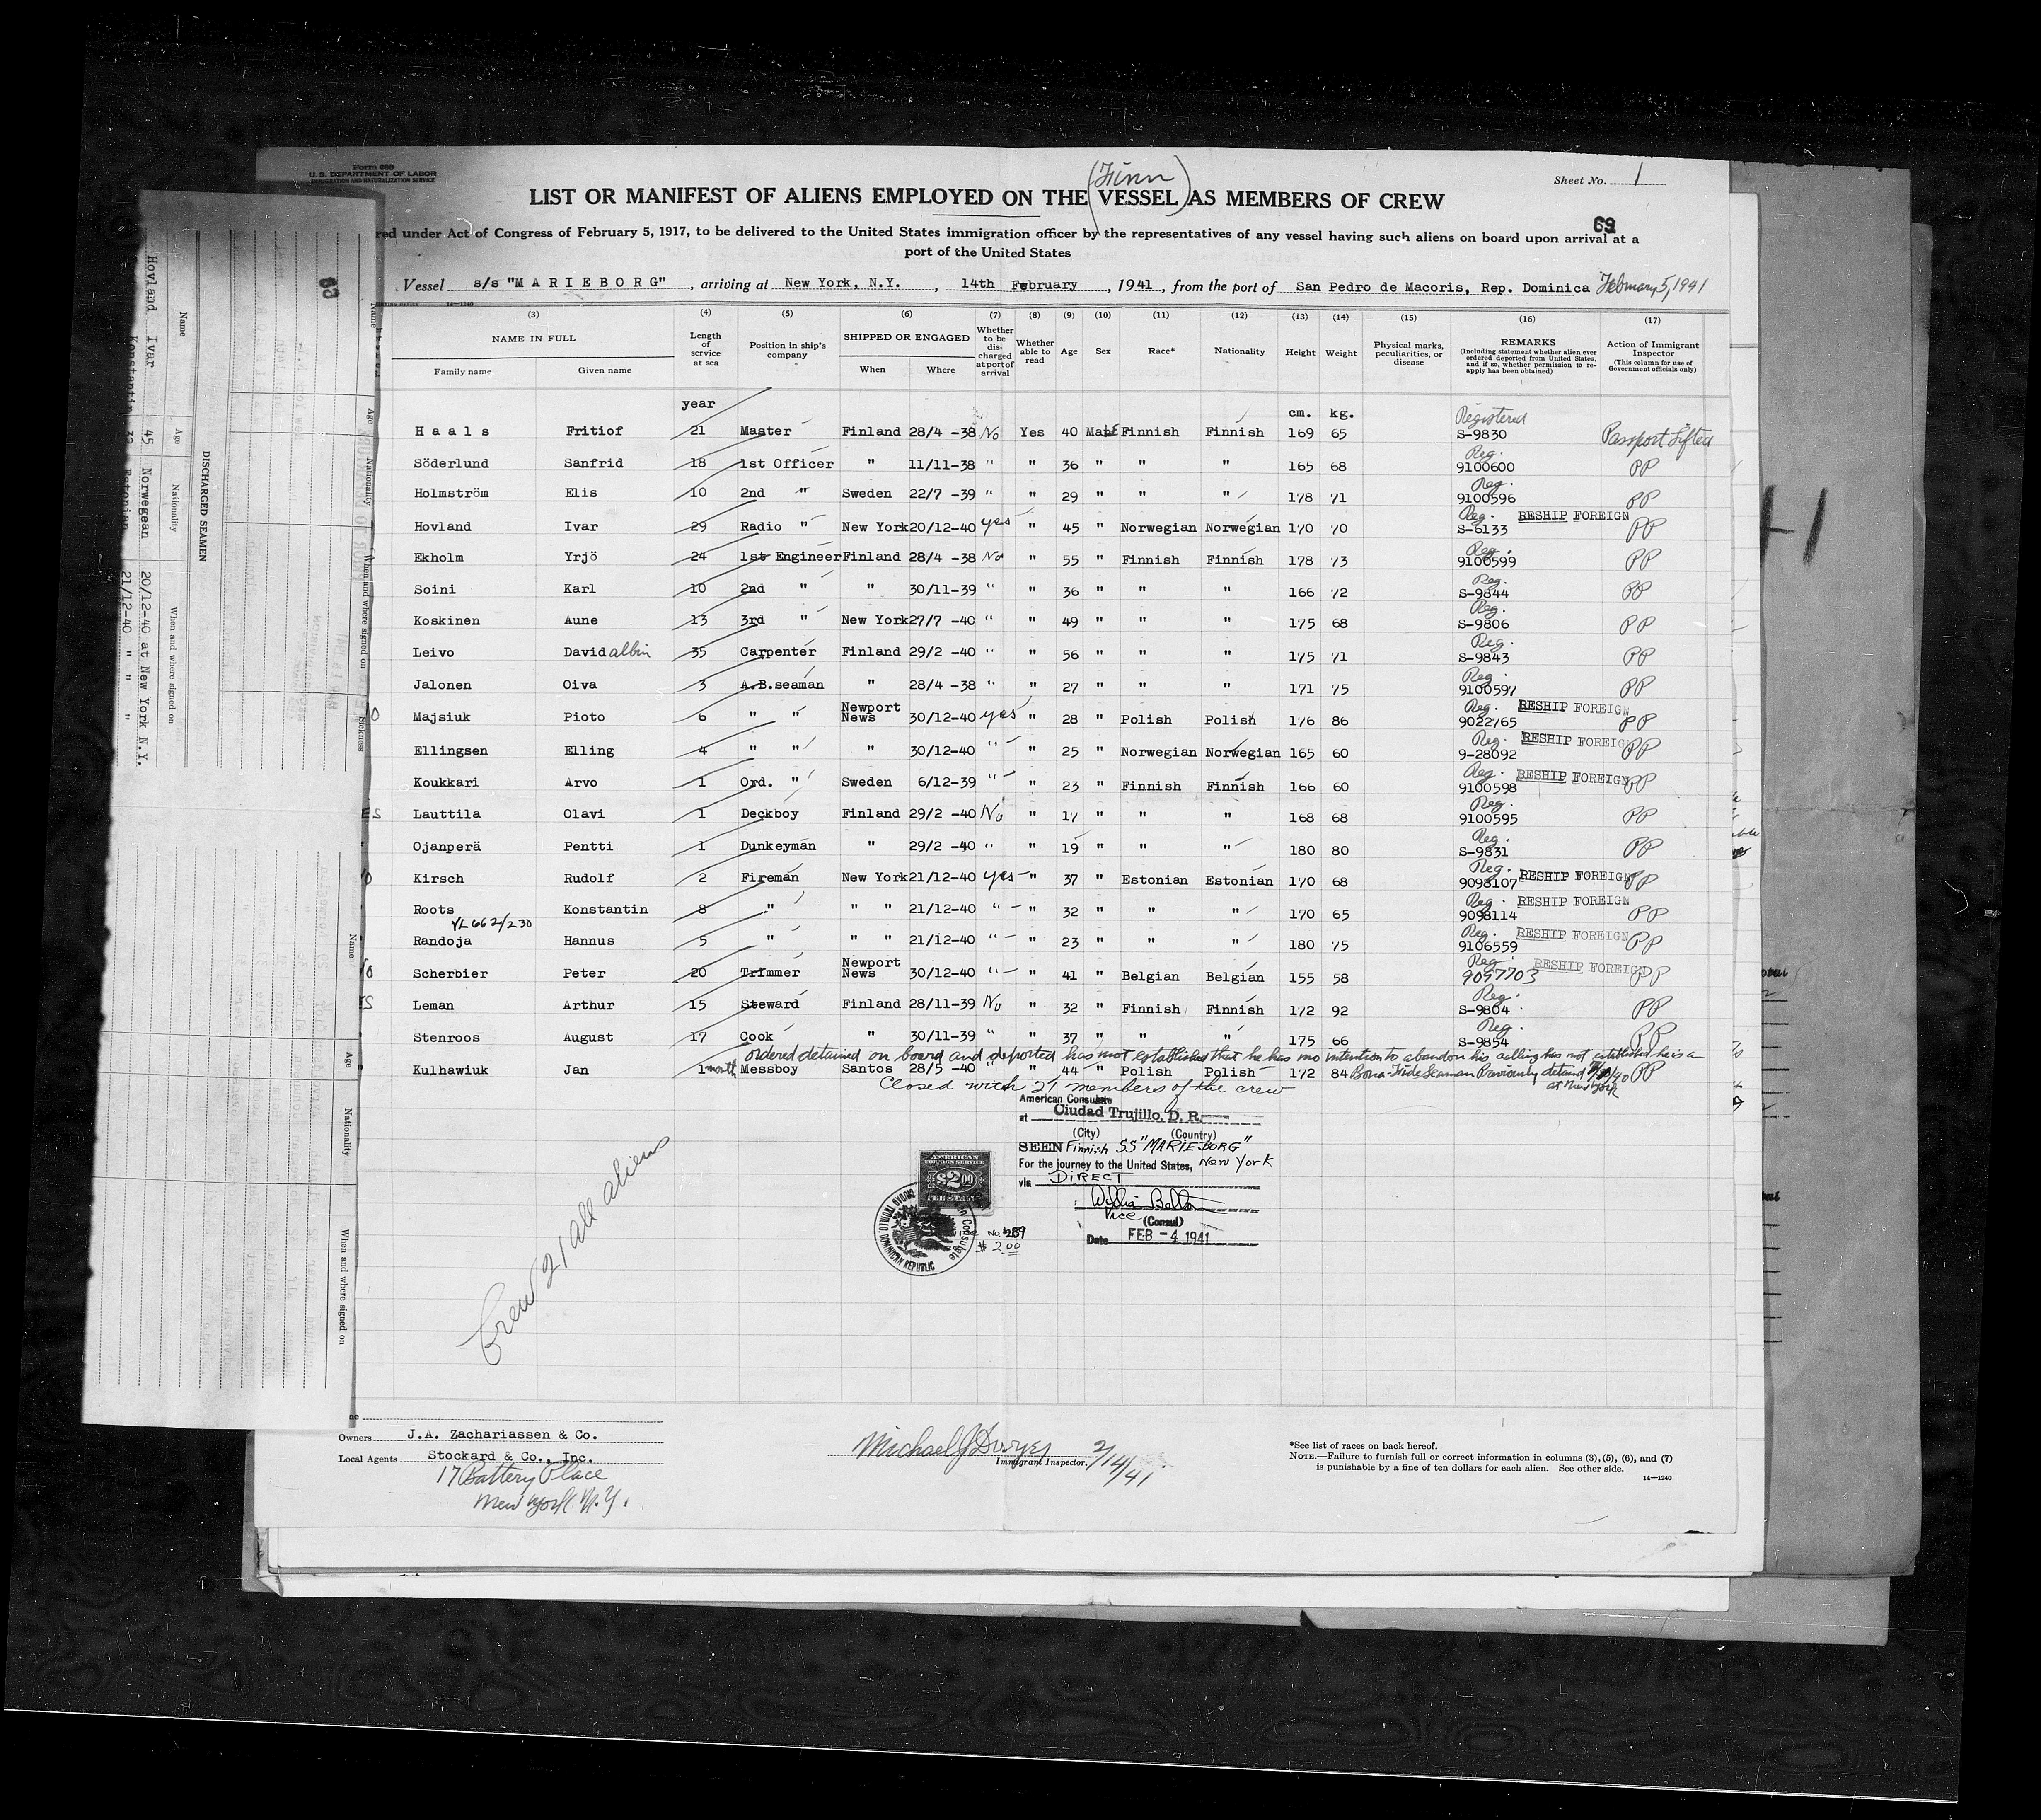 Form 680
U.S. DEPARTMENT OF LABOR
IMMIGRATION AND NATURALIZATION SERVICE
Sheet No. 1
(Finn)
LIST OR MANIFEST OF ALIENS EMPLOYED ON THE VESSEL AS MEMBERS OF CREW
69
red under Act of Congress of February 5, 1917, to be delivered to the United States immigration officer by the representatives of any vessel having such aliens on board upon arrival at a
port of the United States
Vessel s/s "MARIEBORG", arriving at New York, N.Y., 14th February, 1941, from the port of San Pedro de Macoris, Rep. Dominica February 5, 1941
(3) (4) (5) (6) (7) (8) (9) (10) (11) (12) (13) (14) (15) (16) (17)
NAME IN FULL Length of service at sea Position in ship's company SHIPPED OR ENGAGED Whether to be discharged at port of arrival Whether able to read Age Sex Race* Nationality Height Weight Physical marks, peculiarities, or disease REMARKS (Including statement whether alien ever ordered deported from United States, and if so, whether permission to reapply has been obtained) Action of Immigrant Inspector (This column for use of Government officials only)
Family name Given name When Where
year cm. kg. Registered
Haals Fritiof 21 Master Finland 28/4 -38 No Yes 40 Male Finnish Finnish 169 65 S-9830 Passport Lifted
Söderlund Sanfrid 18 1st Officer " 11/11-38 " " 36 " " " 165 68 Reg. 9100600 PP
Holmström Elis 10 2nd " Sweden 22/7 -39 " " 29 " " " 178 71 Reg. 9100596 PP
Hovland Ivar 29 Radio " New York 20/12-40 yes " 45 " Norwegian Norwegian 170 70 Reg. S-6133 RESHIP FOREIGN PP
Ekholm Yrjö 24 1st Engineer Finland 28/4 -38 No " 55 " Finnish Finnish 178 73 Reg. 9100599 PP
Soini Karl 10 2nd " " 30/11-39 " " 36 " " " 166 72 Reg. S-9844 PP
Koskinen Aune 13 3rd " New York 27/7 -40 " " 49 " " " 175 68 Reg. S-9806 PP
Leivo David albin 35 Carpenter Finland 29/2 -40 " " 56 " " " 175 71 Reg. S-9843 PP
Jalonen Oiva 3 A.B.seaman " 28/4 -38 " " 27 " " " 171 75 Reg. 9100597 PP
Majsiuk Pioto 6 " " Newport News 30/12-40 yes " 28 " Polish Polish 176 86 Reg. 9022765 RESHIP FOREIGN PP
Ellingsen Elling 4 " " " 30/12-40 " " 25 " Norwegian Norwegian 165 60 Reg. 9-28092 RESHIP FOREIGN PP
Koukkari Arvo 1 Ord. " Sweden 6/12-39 " " 23 " Finnish Finnish 166 60 Reg. 9100598 RESHIP FOREIGN PP
Lauttila Olavi 1 Deckboy Finland 29/2 -40 No " 17 " " " 168 68 Reg. 9100595 PP
Ojanperä Pentti 1 Dunkeyman " 29/2 -40 " " 19 " " " 180 80 Reg. S-9831 PP
Kirsch Rudolf 2 Fireman New York 21/12-40 yes " 37 " Estonian Estonian 170 68 Reg. 9098107 RESHIP FOREIGN PP
Roots Konstantin 8 " " " 21/12-40 " " 32 " " " 170 65 Reg. 9098114 RESHIP FOREIGN PP
VL 662/230
Randoja Hannus 5 " " " 21/12-40 " " 23 " " " 180 75 Reg. 9106559 RESHIP FOREIGN PP
Scherbier Peter 20 Trimmer Newport News 30/12-40 " " 41 " Belgian Belgian 155 58 Reg. 9097703 RESHIP FOREIGN PP
Leman Arthur 15 Steward Finland 28/11-39 No " 32 " Finnish Finnish 172 92 Reg. S-9804 PP
Stenroos August 17 Cook " 30/11-39 " " 37 " " " 175 66 Reg. S-9854 PP
ordered detained on board and deported has not established that he has no intention to abandon his calling has not established he is a
Kulhawiuk Jan 1 month Messboy Santos 28/5 -40 " " 44 " Polish Polish 172 84 Bona-Fide Seaman Previously detained at New York PP
Closed with 21 members of the crew
American Consulate
at Ciudad Trujillo, D. R.
(City) (Country)
SEEN Finnish SS "MARIEBORG"
For the journey to the United States, New York
via DIRECT
Vice (Consul)
Date FEB -4 1941
AMERICAN
FOREIGN SERVICE
$2.00
FEE STAMP
No. 1289
$2.00
Crew 21 all aliens
Owners J.A. Zachariassen & Co.
Local Agents Stockard & Co., Inc.
17 Battery Place
New York N.Y.
Michael J Dwyer 2/14/41
Immigrant Inspector.
*See list of races on back hereof.
NOTE.—Failure to furnish full or correct information in columns (3), (5), (6), and (7)
is punishable by a fine of ten dollars for each alien. See other side.
14—1240
DISCHARGED SEAMEN
Name Age Nationality When and where signed on
Hovland Ivar 45 Norwegean 20/12-40 at New York N.Y.
Konstantin 32 Estonian 21/12-40 " " "
Name Age Nationality When and where signed on Sickness
Name Age Nationality When and where signed on